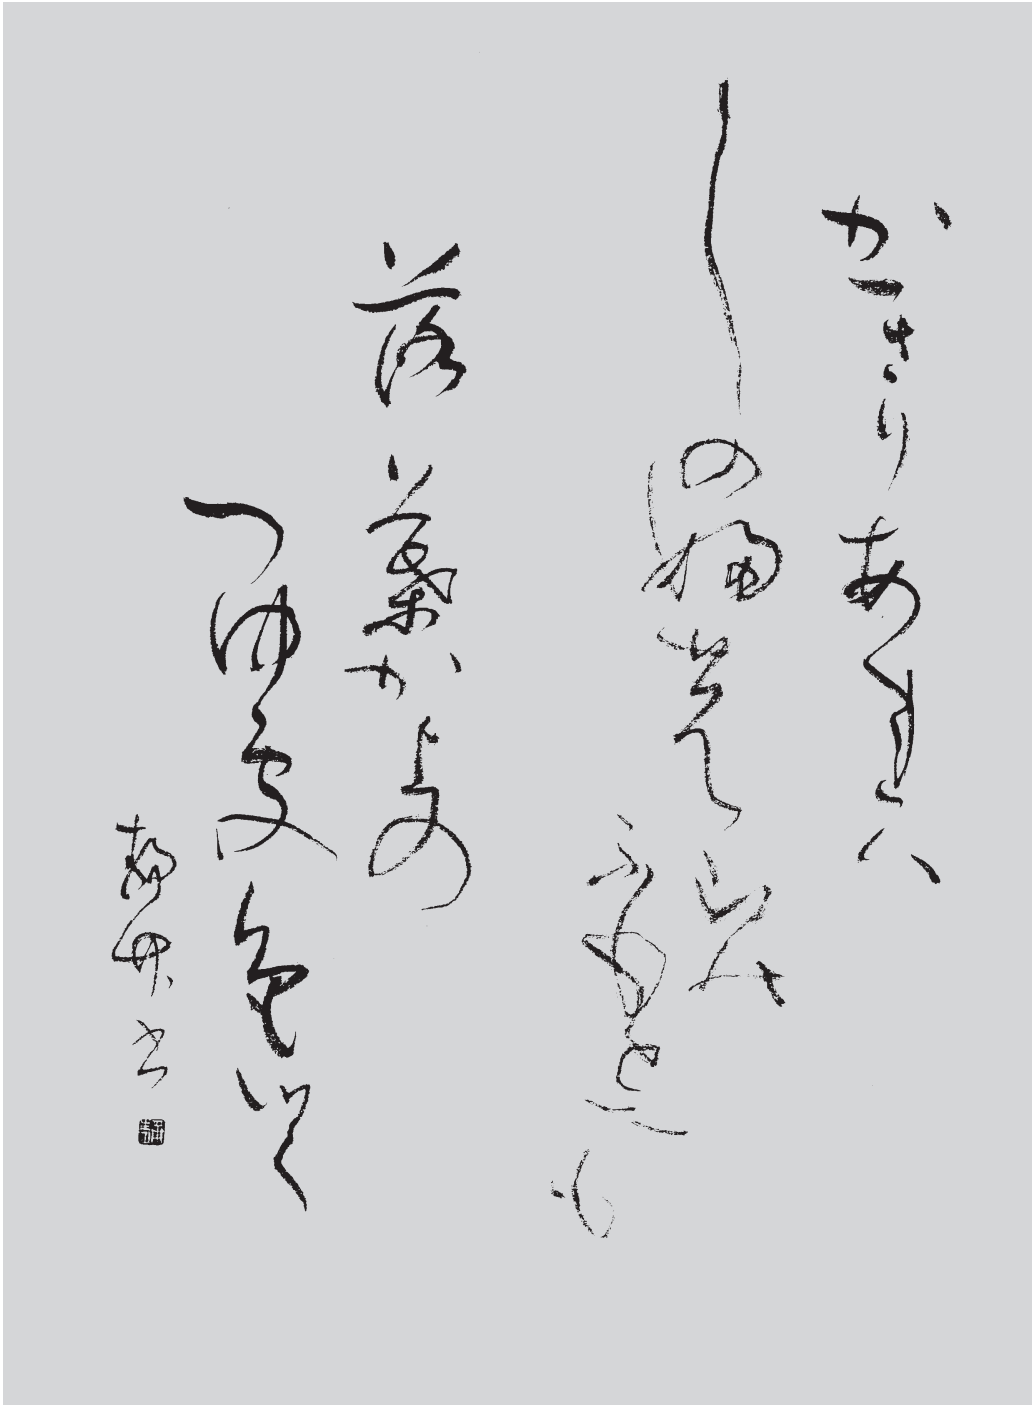 かきりあれハ
しの婦の山の
ふもとにも
落葉か上の
つゆそ色つく
書